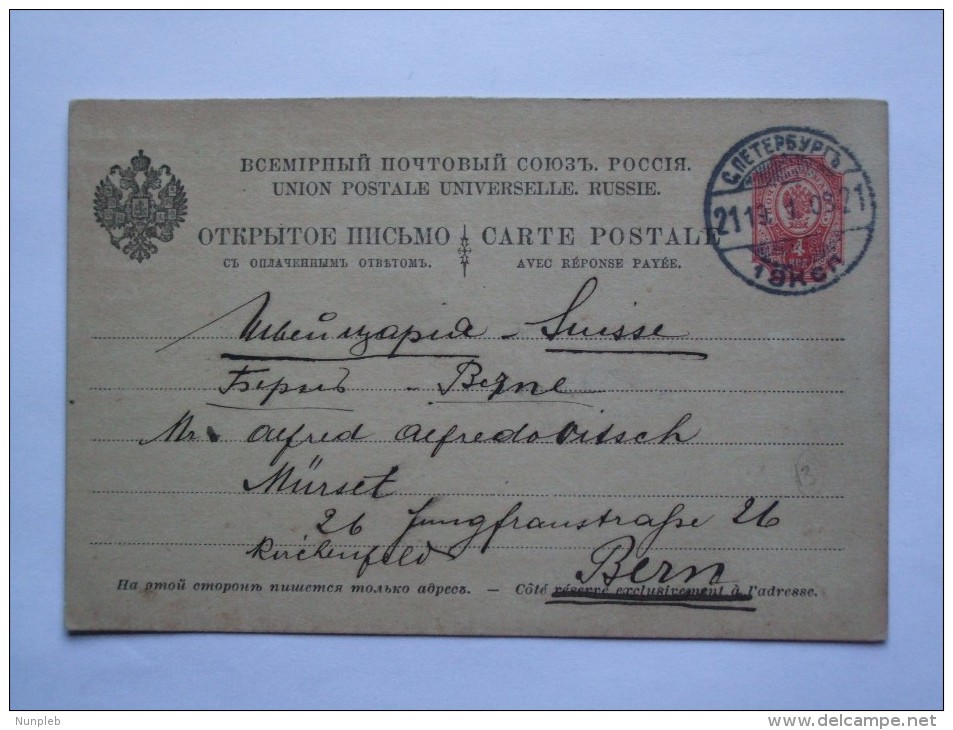 ВСЕМІРНЫЙ ПОЧТОВЫЙ СОЮЗЪ. РОССІЯ.
UNION POSTALE UNIVERSELLE. RUSSIE.
ОТКРЫТОЕ ПИСЬМО CARTE POSTALE
СЪ ОПЛАЧЕННЫМЪ ОТВѢТОМЪ. AVEC RÉPONSE PAYÉE.
С.ПЕТЕРБУРГЪ
21 19. 1 03 21
1 ЭКСП.
4
Швейцарія - Suisse
Бернъ - Berne
Mr. Alfred Alfredovitsch
Mürset
26 Jungfraustraße 26
Kirchenfeld
Bern
3
На этой сторонѣ пишется только адресъ. — Côté réservé exclusivement à l'adresse.
Nunpleb
www.delcampe.net